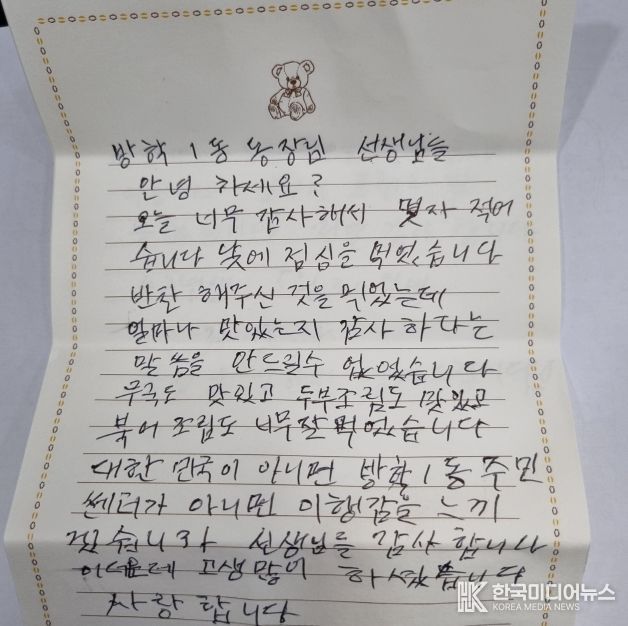 방학 1동 동장님 선생님들
안녕 하세요?
오늘 너무 감사해서 몇자 적어
습니다 낮에 점심을 먹었습니다
반찬 해주신 것을 먹었는데
얼마나 맛있는지 감사 하다는
말씀을 안드릴수 없었습니다
무국도 맛있고 두부조림도 맛있고
북어 조림도 너무잘 먹었습니다
대한 민국이 아니면 방학1동 주민
쎈터가 아니면 이행감을 느끼
겠습니까 선생님들 감사 합니다
고생많이 하셨습니다
사랑 합니다
HK 한국미디어뉴스
KOREA MEDIA NEWS